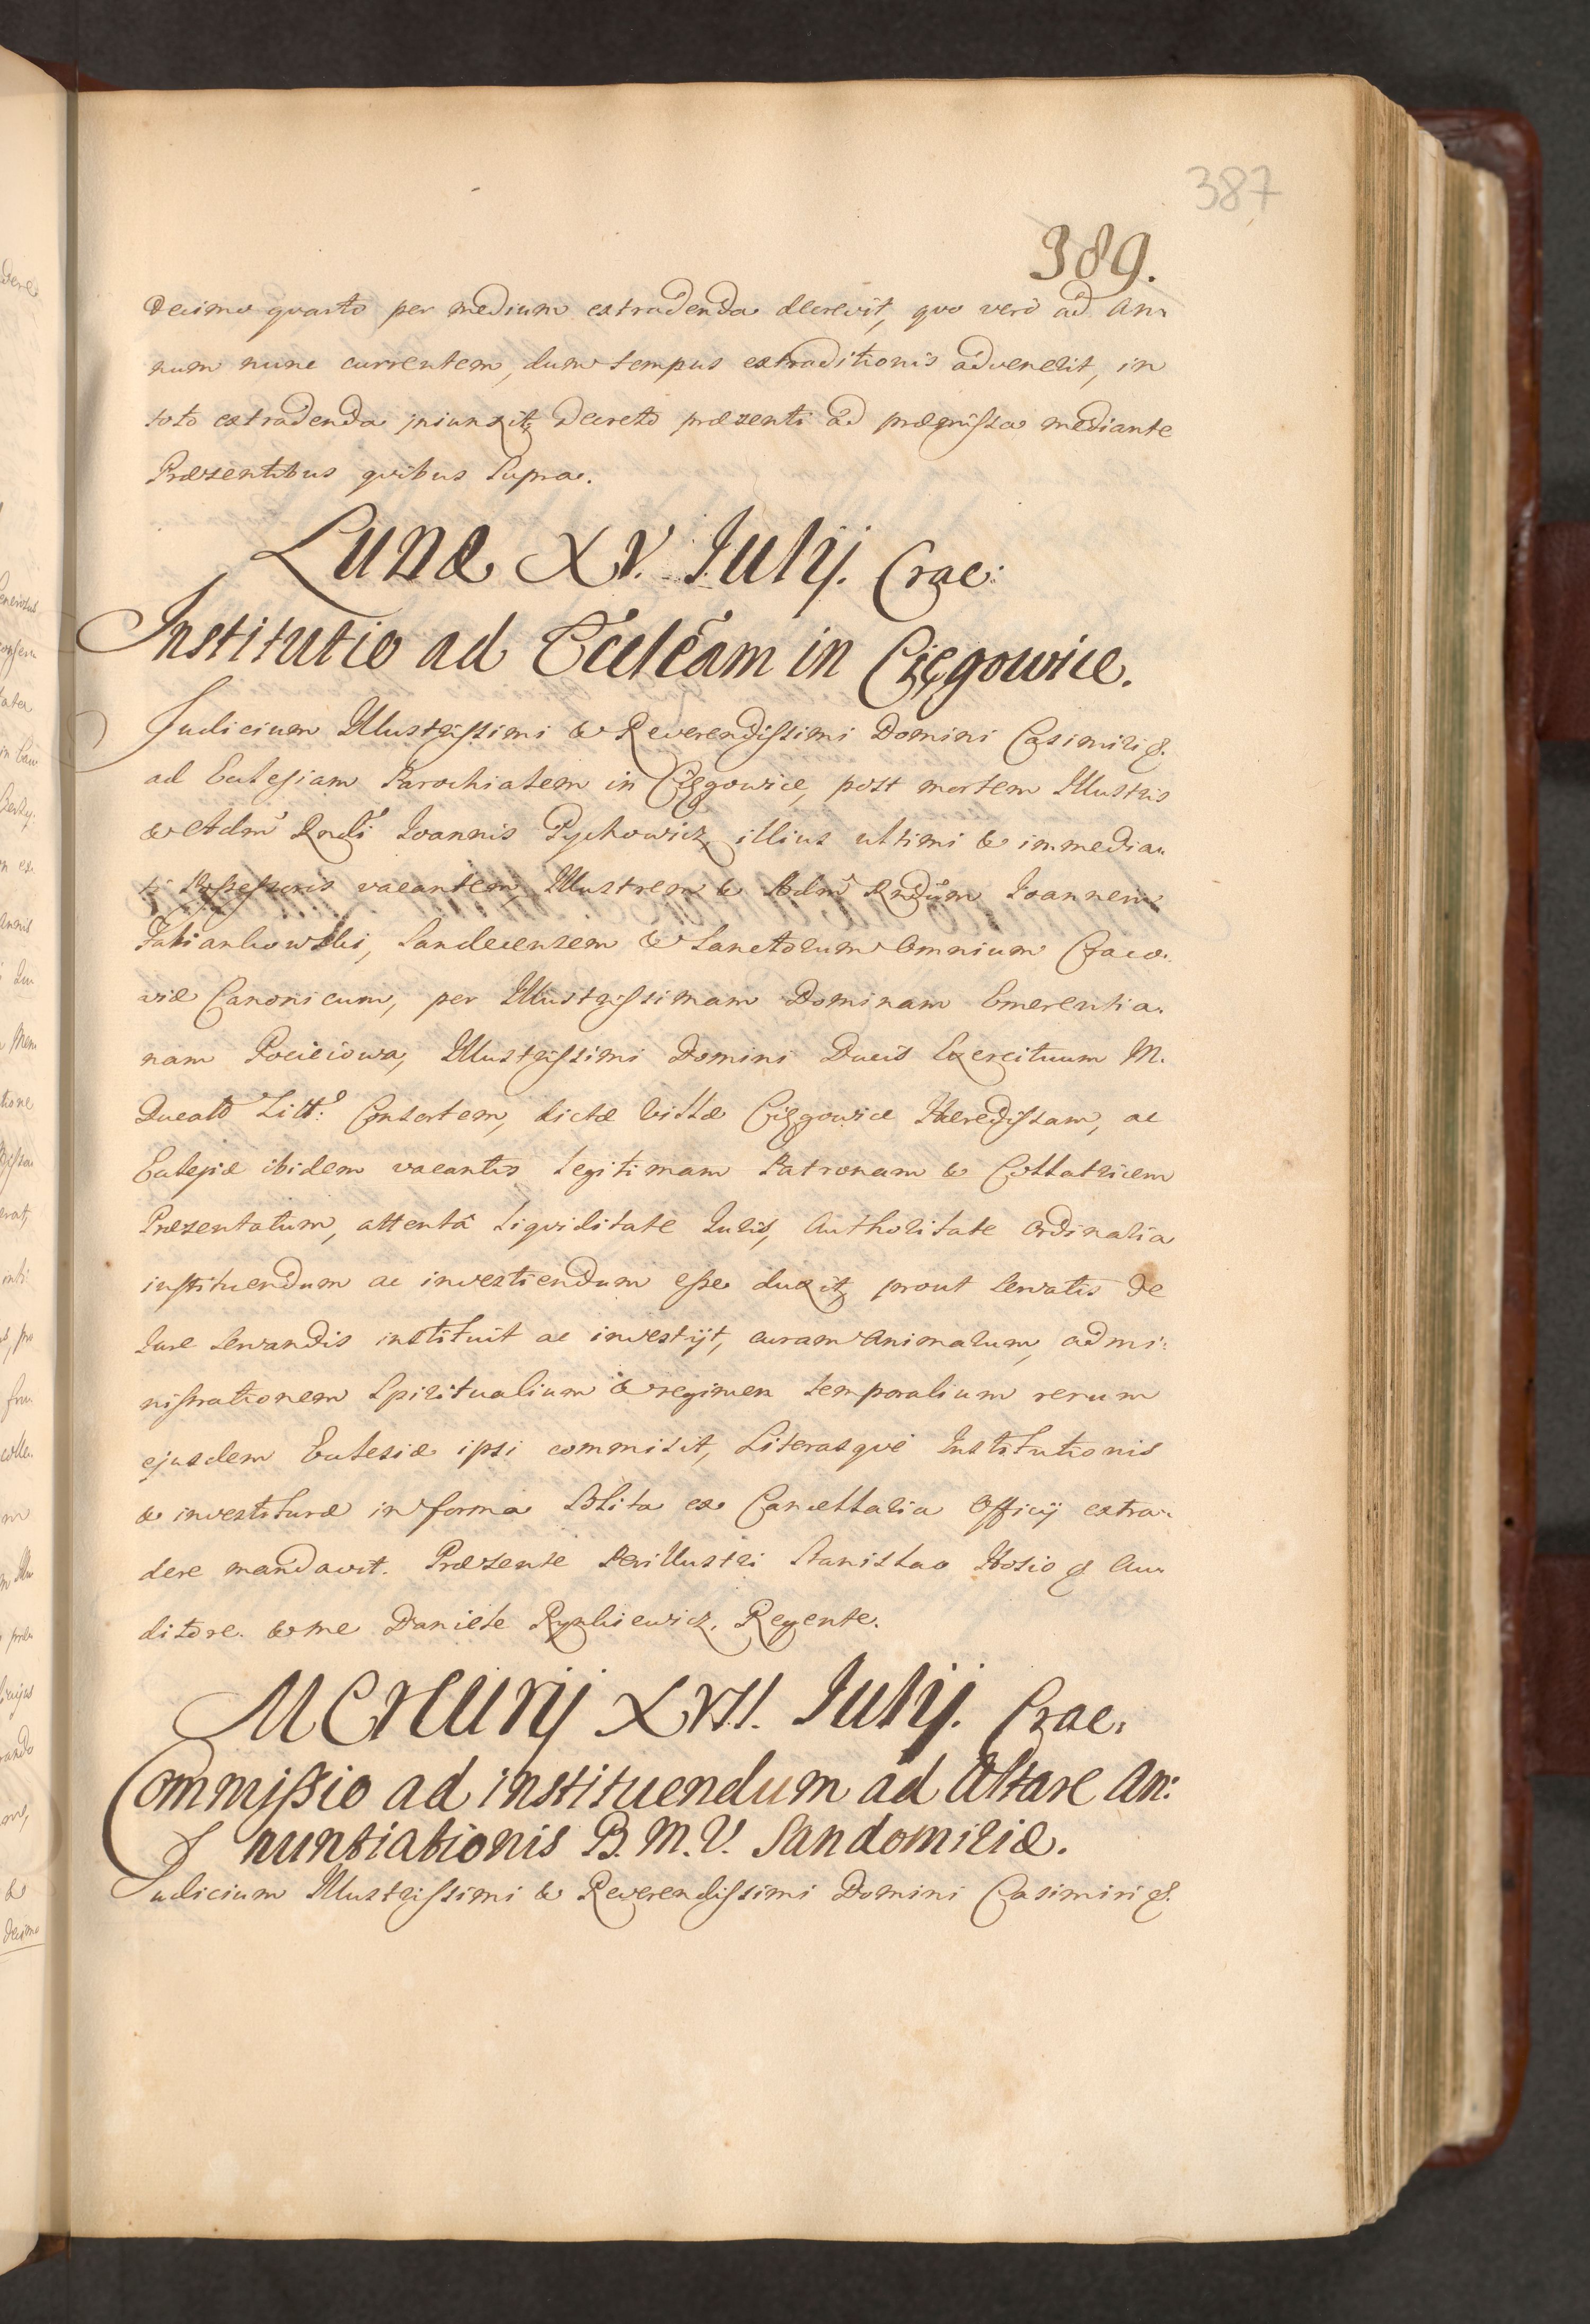 387
389.
Decimo quarto per medium extradenda decrevit, quo vero ad An-
num nunc currentem, dum tempus extraditionis advenerit, in
toto extradenda iniunxit, Decreto præsenti ad præmissa mediante
Præsentibus quibus supra.
Lunæ XV. Iulij. Crac:
Institutio ad Eccleãm in Cięgowice.
Judicium Illustrissimi & Reverendissimi Domini Casimiri &.
ad Ecclesiam Parochialem in Cięgowice, post mortem Illustris
& Adm Rndi Ioannis Pychowicz, illius ultimi & immedia-
ti Possessoris vacantem, Illustrem & Adm Rndum Ioannem
Fabiankowski, Sandecensem & Sanctorum Omnium Craco-
viæ Canonicum, per Illustrissimam Dominam Emerentia-
nam Pocieiowa, Illustrissimi Domini Ducis Exercituum M.
Ducats Litt: Consortem, dictæ Villæ Cięgowice Hæredissam, ac
Eccelsiæ ibidem vacantis legitimam Patronam & Collatricem
Præsentatum, attentâ liquiditate Iuris, Authoritate Ordinaria
instituendum ac investiendum esse duxit, prout servatis de
Iure servandis instituit ac investijt, curam Animarum, admi-
nistrationem Spiritualium & regimen temporalium rerum
ejusdem Ecclesiæ ipsi commisit, Literasque Institutionis
& investituræ in forma solita ex Cancellaria Officij extra-
dere mandavit. Præsente Perillustri Stanislao Hosio & Au-
ditore. & me Daniele Rynkiewicz. Regente.
Mercurij XVII. Iulij. Crac:
Commissio ad instituendum ad Altare An:
nuntiationis B. M. V. Sandomiriæ.
Judicium Illustrissimi & Reverendissimi Domini Casimiri &.